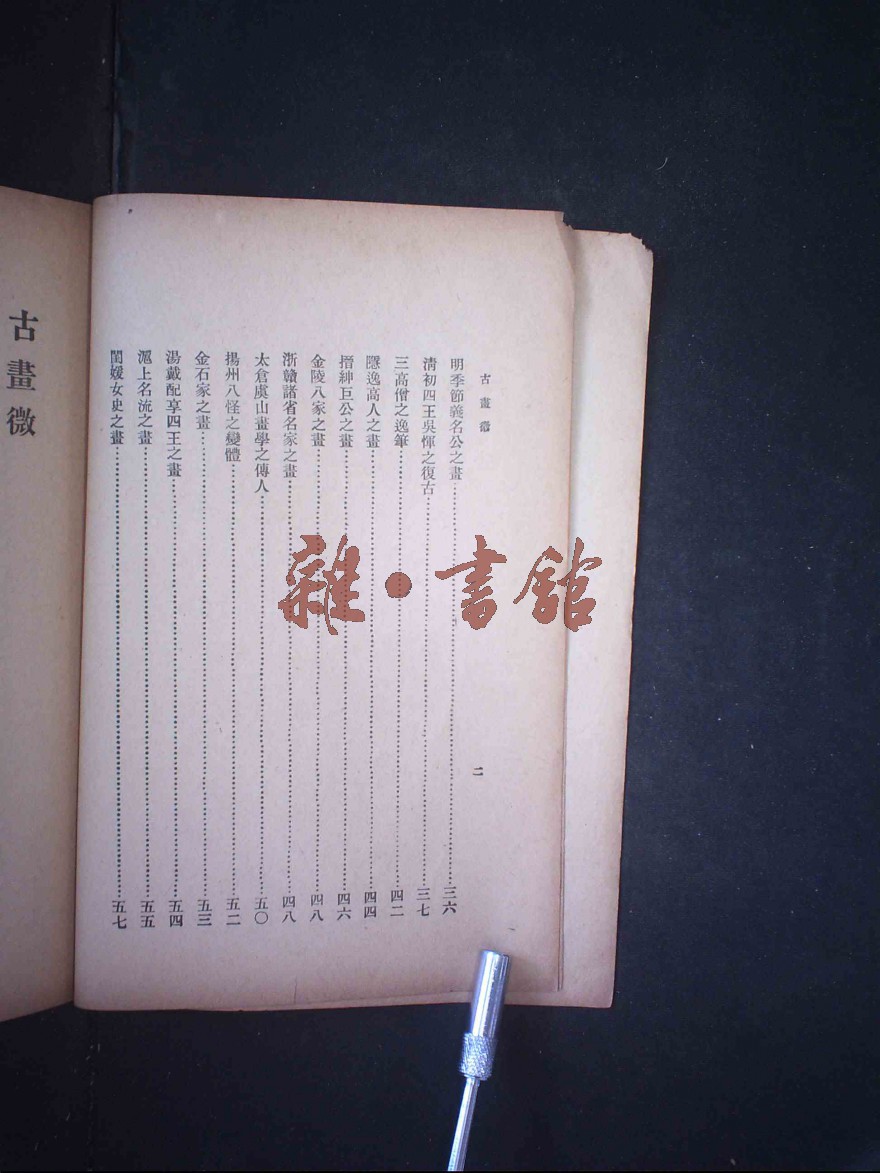 古畫微
二
明季節義名公之畫……三六
清初四王吳惲之復古……三七
三高僧之逸筆……四二
隱逸高人之畫……四四
搢紳巨公之畫……四六
金陵八家之畫……四八
浙贛諸省名家之畫……四八
太倉虞山畫學之傳人……五〇
揚州八怪之變體……五二
金石家之畫……五三
湯戴配享四王之畫……五四
滬上名流之畫……五五
閨媛女史之畫……五七
古畫微
雜·書館